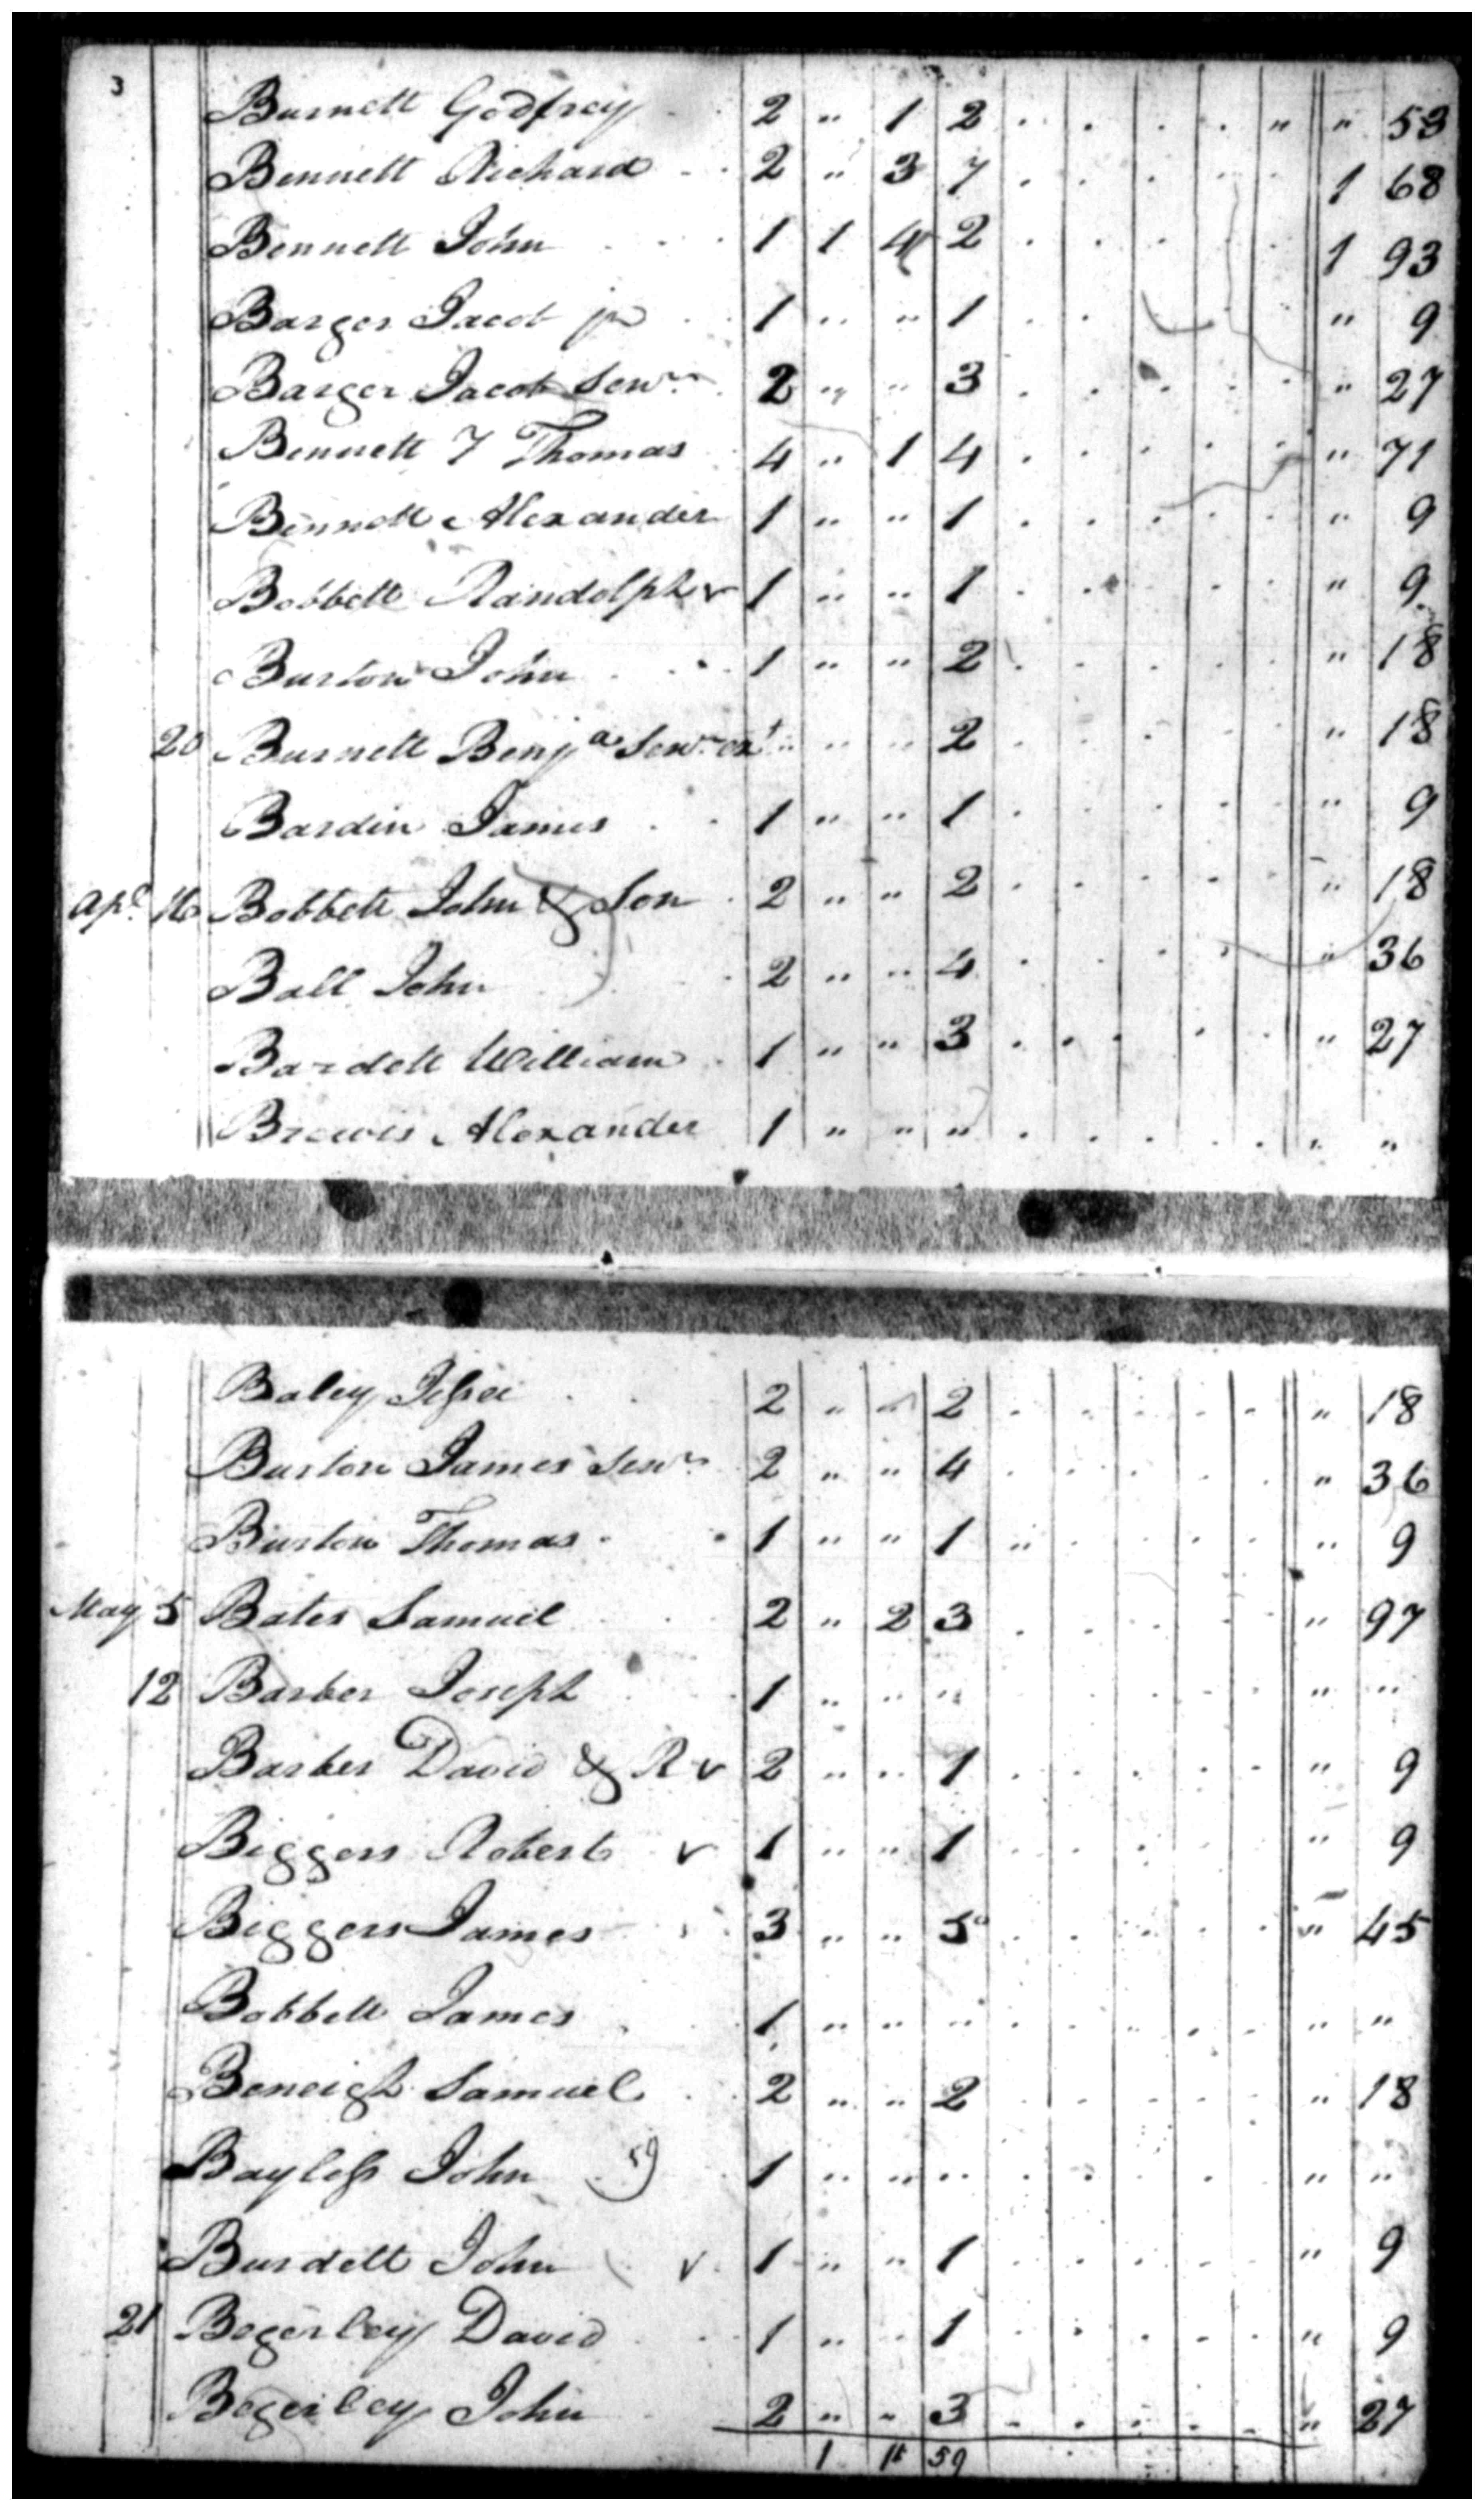 3
Burnett Godfrey 2 " 1 2 . . . . " " 53
Bennett Richard 2 " 3 7 . . . . . 1 68
Bennett John 1 1 4 2 . . . . . 1 93
Barger Jacob jr 1 " " 1 . . " 9
Barger Jacob Senr 2 " " 3 . . . . . " 27
Bennett 7 Thomas 4 " 1 4 . . . . . " 71
Bennett Alexander 1 " " 1 . . . . . " 9
Bobbett Randolph v 1 " " 1 . . . . . " 9
Burton John 1 " " 2 . . . . . " 18
20 Burnett Benja Senr ext " " " 2 . . . . . " 18
Bardin James 1 " " 1 . . . . . " 9
Apl 16 Bobbett John & Son 2 " " 2 . . . . . " 18
Ball John 2 " " 4 . . . . . " 36
Bardett William 1 " " 3 . . . . . " 27
Alexander 1 " " " . . . . . " "
Baley Jesse 2 " " 2 . . . . . " 18
Burton James Senr 2 " " 4 . . . . . " 36
Burton Thomas 1 " " 1 " . . . . " 9
May 5 Bates Samuel 2 " 2 3 . . . . . " 97
12 Barber Joseph 1 " " " . . . . . " "
Barber David & R v 2 " " 1 . . . . . " 9
Biggers Robert v 1 " " 1 . . . . . " 9
Biggers James 3 " " 5 . . . . . " 45
Bobbett James 1 " " " . . . . . " "
Beneigh Samuel 2 " " 2 . . . . . " 18
Bayless John 59 1 " " " . . . . . " "
Burdett John v 1 " " 1 . . . . . " 9
21 Begerley David 1 " " 1 . . . . . " 9
Begerley John 2 " " 3 . . . . . " 27
1 59